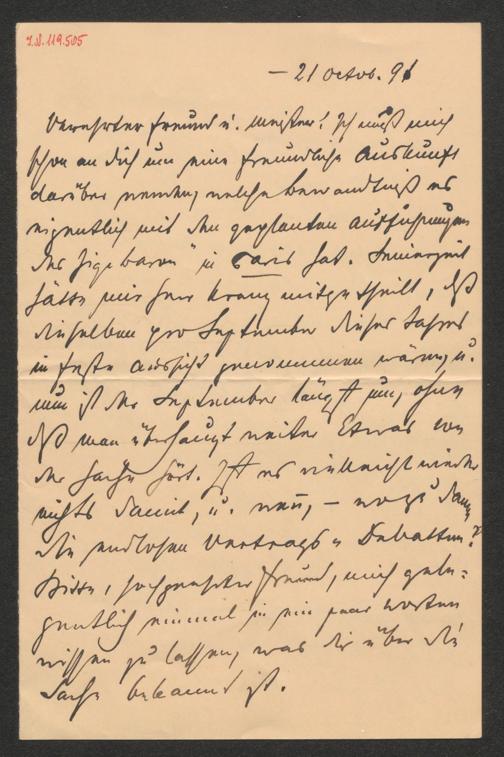 I.N. 119.505
– 21 Octob. 91
Verehrter Freund u. Meister! Ich muß mich
schon an Dich um eine freundliche Auskunft
darüber wenden, welche Bewandtniß es
eigentlich mit den geplanten Aufführungen
des Zig. baron" in Paris hat. Seinerzeit
hätte mir Herr Kranz mitgetheilt, daß
dieselben pro September dieses Jahres
in feste Aussicht genommen wären, u.
nun ist der September längst um, ohne
daß man überhaupt weiter Etwas von
der Sache hört. Ist es vielleicht wieder
nichts damit, u. wenn, – wozu dann
die endlosen Vertrags-Debatten?
Bitte, hochgeehrter Freund, mich gele=
gentlich einmal in ein paar Worten
wissen zu lassen, was Dir über die
Sache bekannt ist.